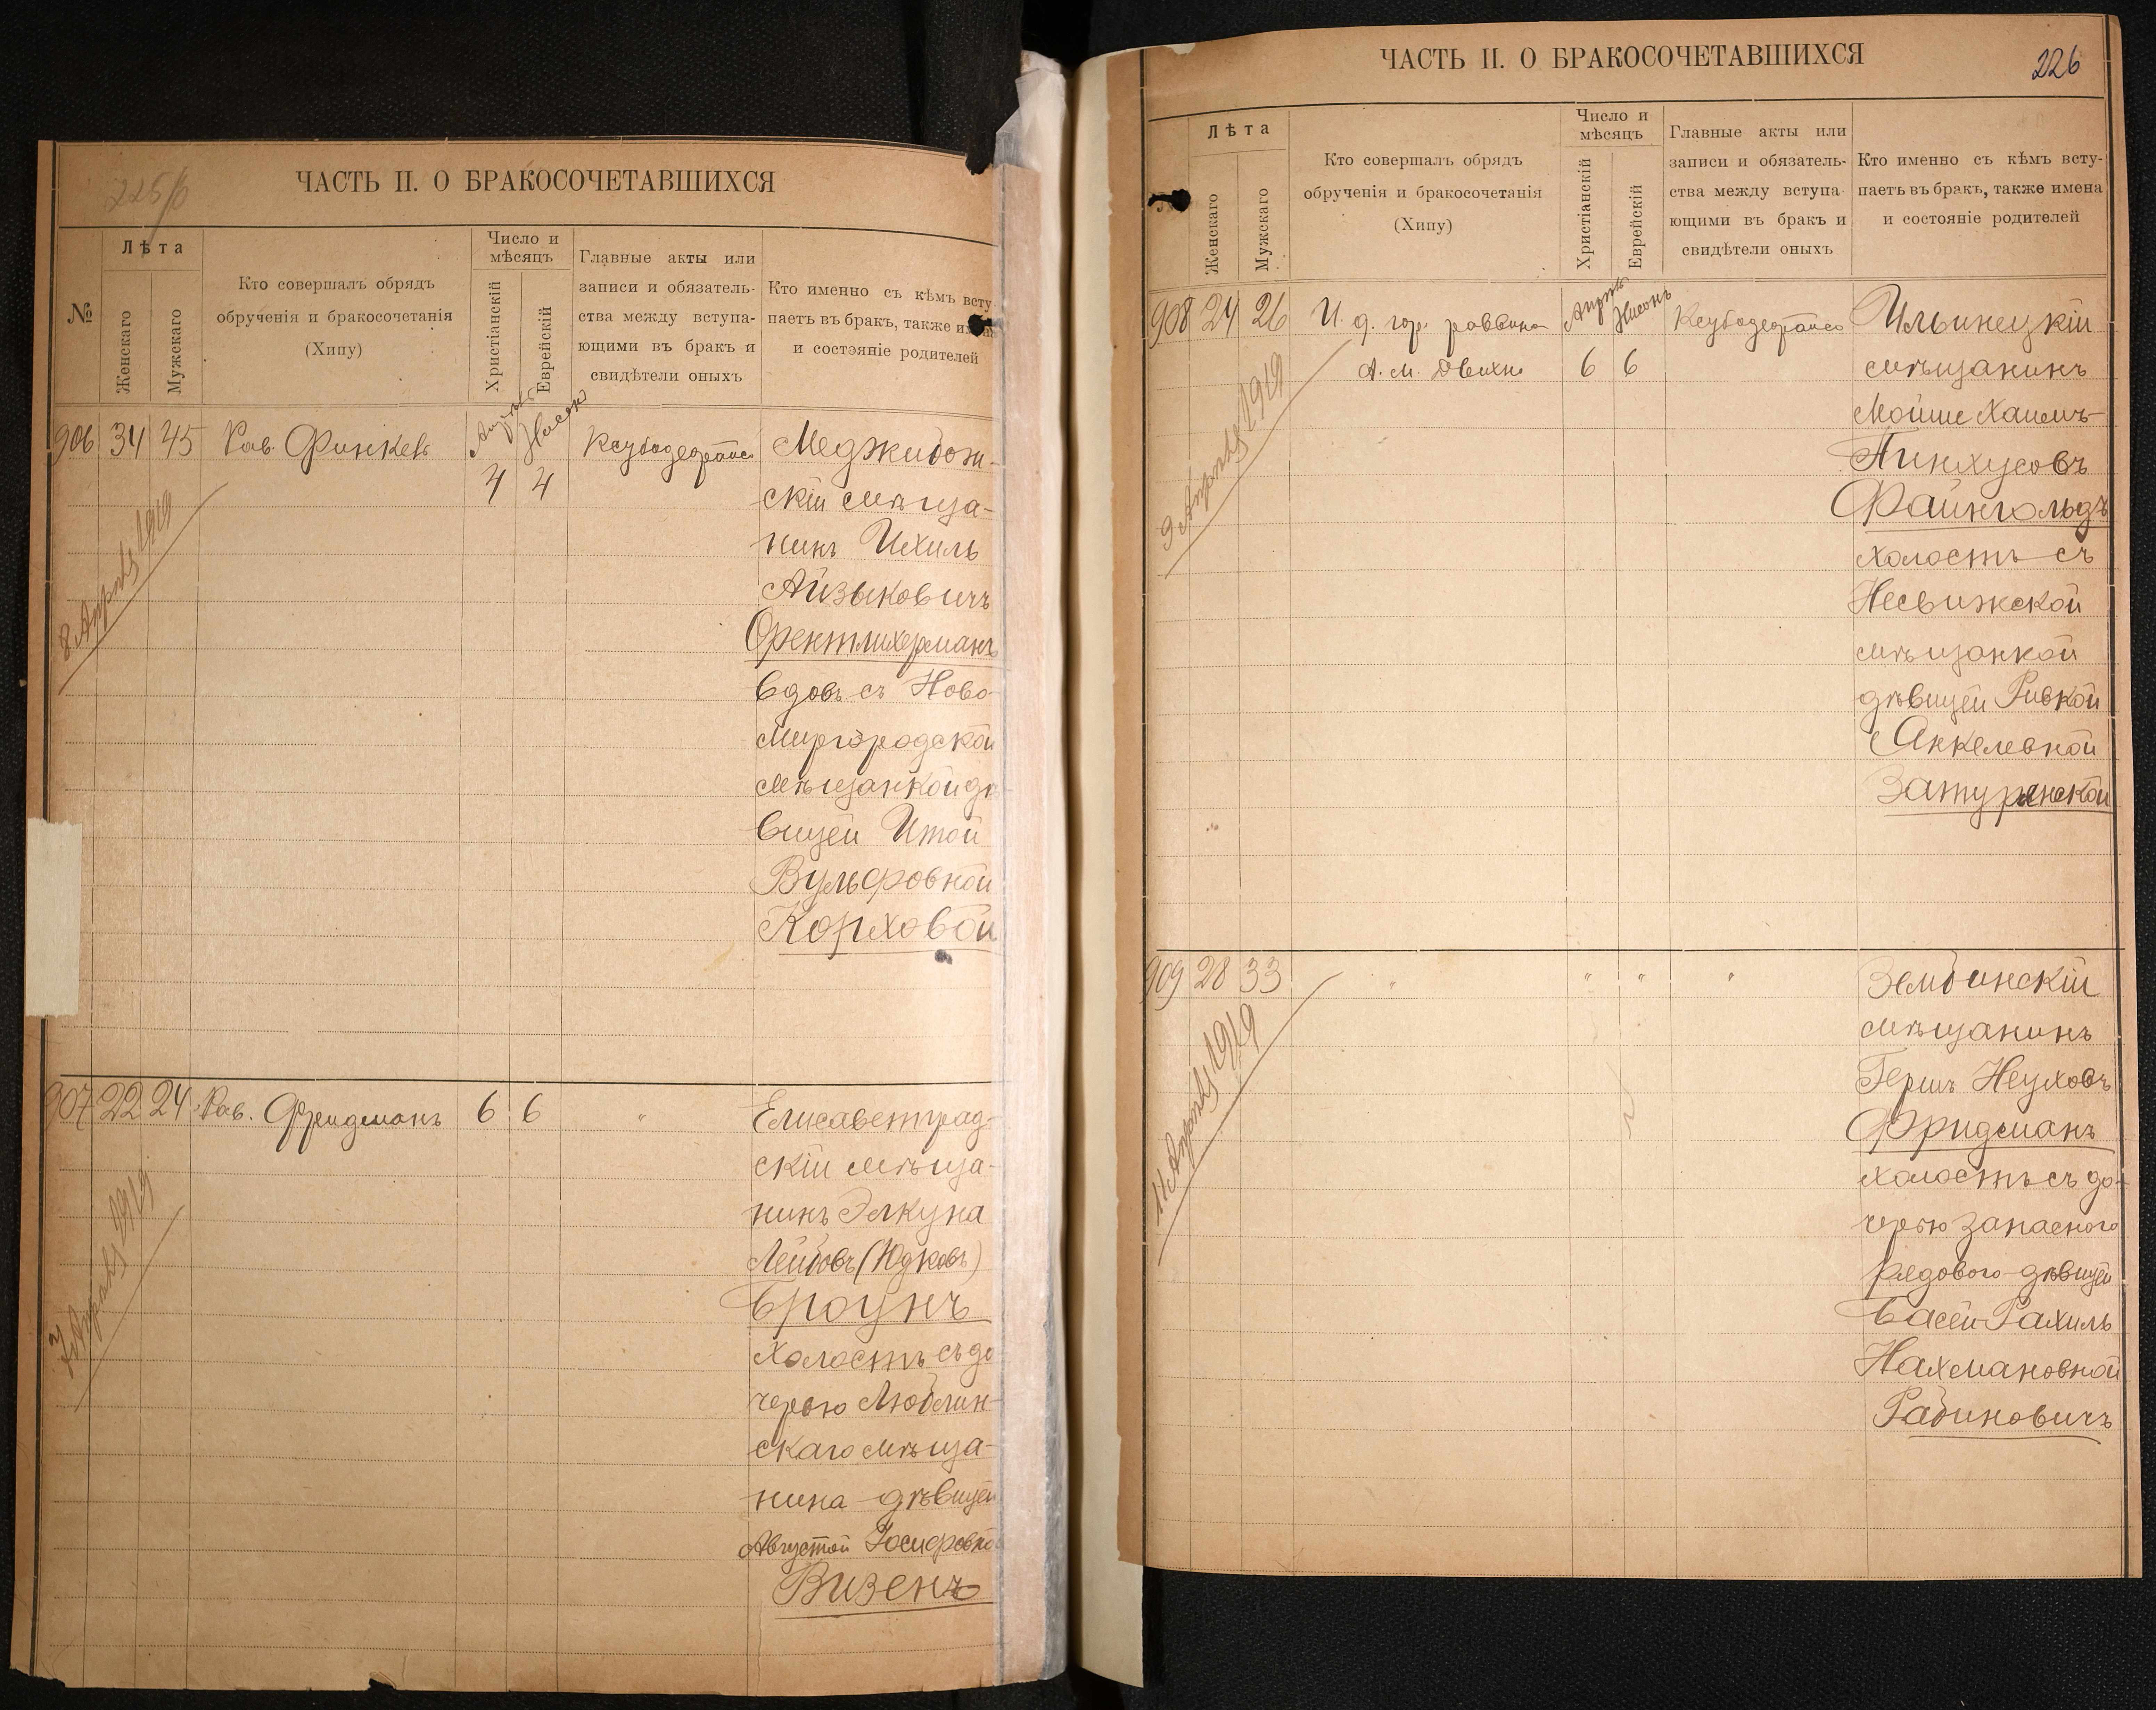 225/б
ЧАСТЬ II. О БРАКОСОЧЕТАВШИХСЯ
№
Лѣта
Женскаго
Мужскаго
Кто совершалъ обрядъ
обрученія и бракосочетанія
(Хипу)
Число и
мѣсяцъ
Христіанскій
Еврейскій
Главные акты или
записи и обязатель-
ства между вступа-
ющими въ бракъ и
свидѣтели оныхъ
Кто именно съ кѣмъ всту
паетъ въ бракъ, также им
и состояніе родителей
906 34 45 Рав. Финкель
Апрѣль Нисонъ
4 4
8 Апрѣль 1919
Меджибож-
скій мѣща-
нинъ Ихиль
Айзыковичъ
Фректлихерманъ
вдовъ съ Ново-
миргородской
мѣщанкой дѣ-
вицей Итой
Вульфовной
Корховой
907 22 24 Рав. Фридманъ 6 6 "
7 Апрѣль 1919
Елисаветград-
скій мѣща-
нинъ Элкуна
Лейбовъ (Юдковъ)
Броунъ
холостъ съ до
черью Люблин-
скаго мѣща-
нина дѣвицей
Августой Іосифовно
Визенъ
226
ЧАСТЬ II. О БРАКОСОЧЕТАВШИХСЯ
Лѣта
Женскаго
Мужскаго
Кто совершалъ обрядъ
обрученія и бракосочетанія
(Хипу)
Число и
мѣсяцъ
Христіанскій
Еврейскій
Главные акты или
записи и обязатель-
ства между вступа
ющими въ бракъ и
свидѣтели оныхъ
Кто именно съ кѣмъ всту-
паетъ въ бракъ, также имена
и состояніе родителей
908 24 26 И. д. гор. раввина
Апрѣль Нисонъ
6 6
9 Апрѣль 1919
Ильинецкій
мѣщанинъ
Мойше Хаимъ-
Пинхусовъ
Файнгольдъ
холостъ съ
Несвижской
мѣщанкой
дѣвицей Ривкой
Анкелевной
Затурянской
909 28 33 " " " "
11 Апрѣль 1919
Зембинскій
мѣщанинъ
Гершъ Неуховъ
Фридманъ
холостъ съ до-
черью запасного
рядового дѣвицей
Басей Рахиль
Нахмановной
Рабиновичъ